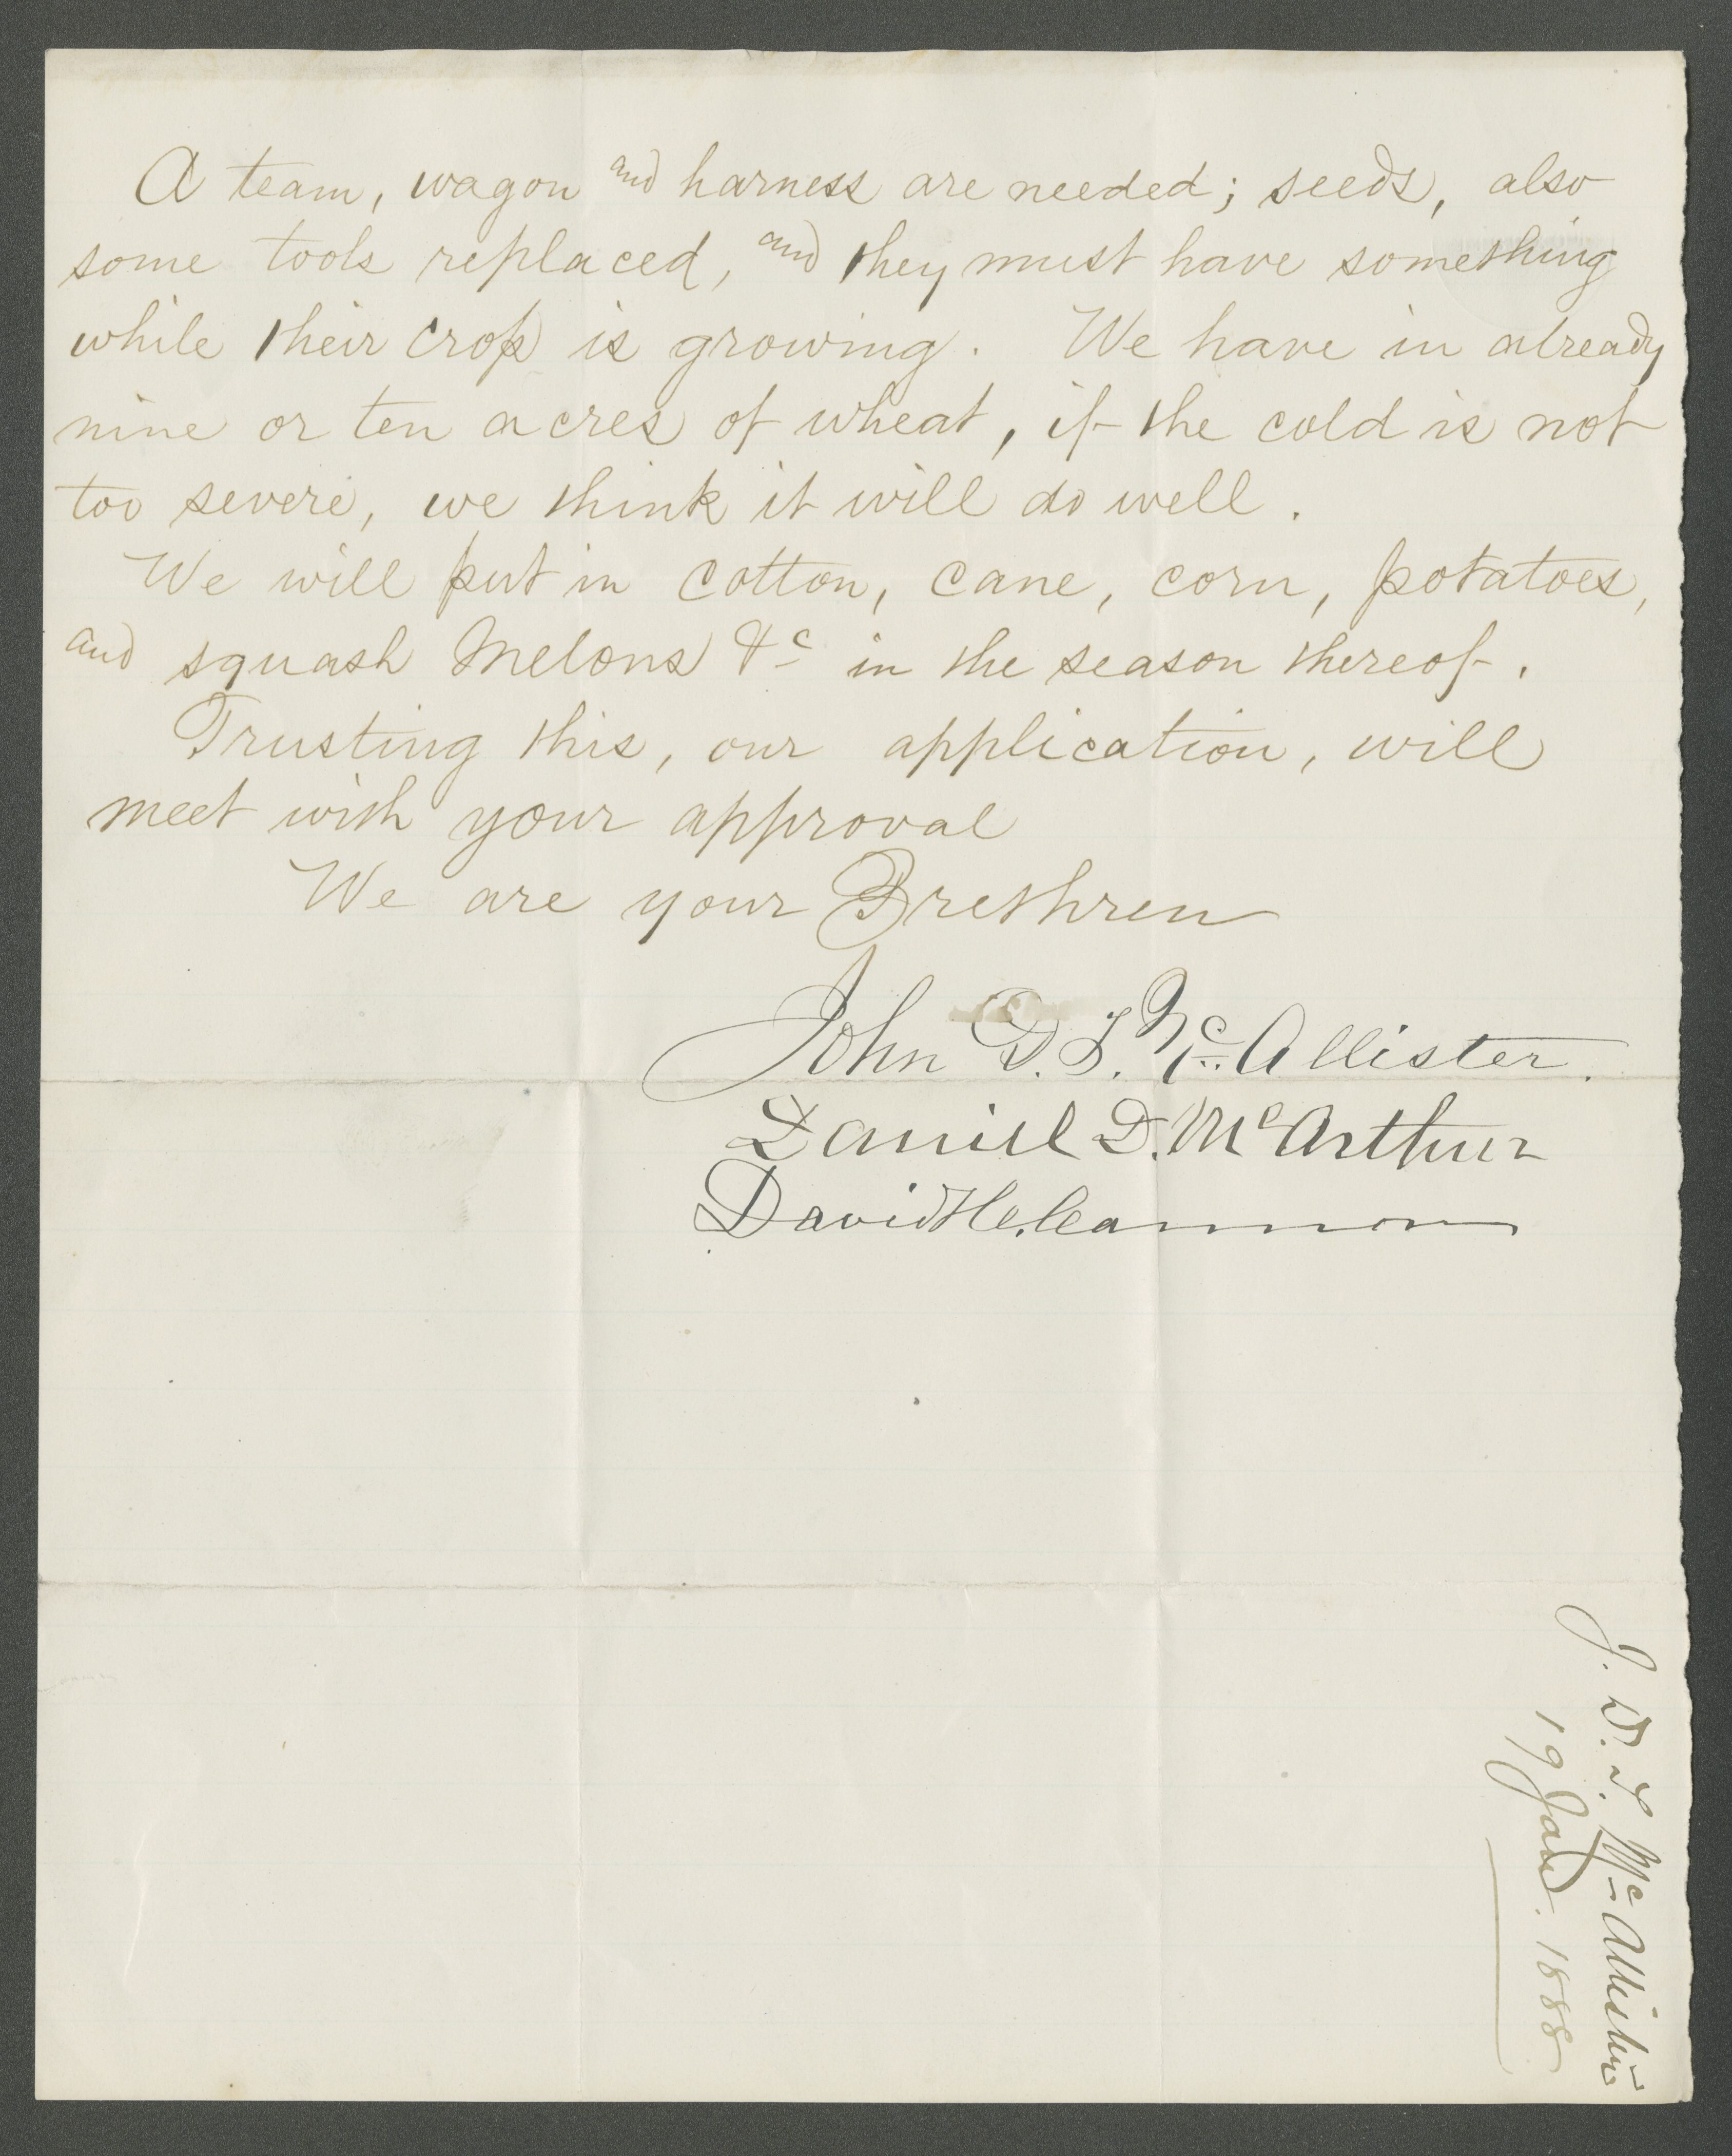 A team, wagon and harness are needed; seeds, also
some tools replaced, and they must have something
while their crop is growing. We have in already
nine or ten acres of wheat, if the cold is not
too severe, we think it will do well.
We will put in cotton, cane, corn, potatoes,
and squash Melons &c in the season thereof.
Trusting this, our application, will
meet with your approval
We are your Brethren
John D. T. McAllister.
Daniel D. McArthur
David H. Cannon
J. D. T. McAllister
19 Jan. 1888